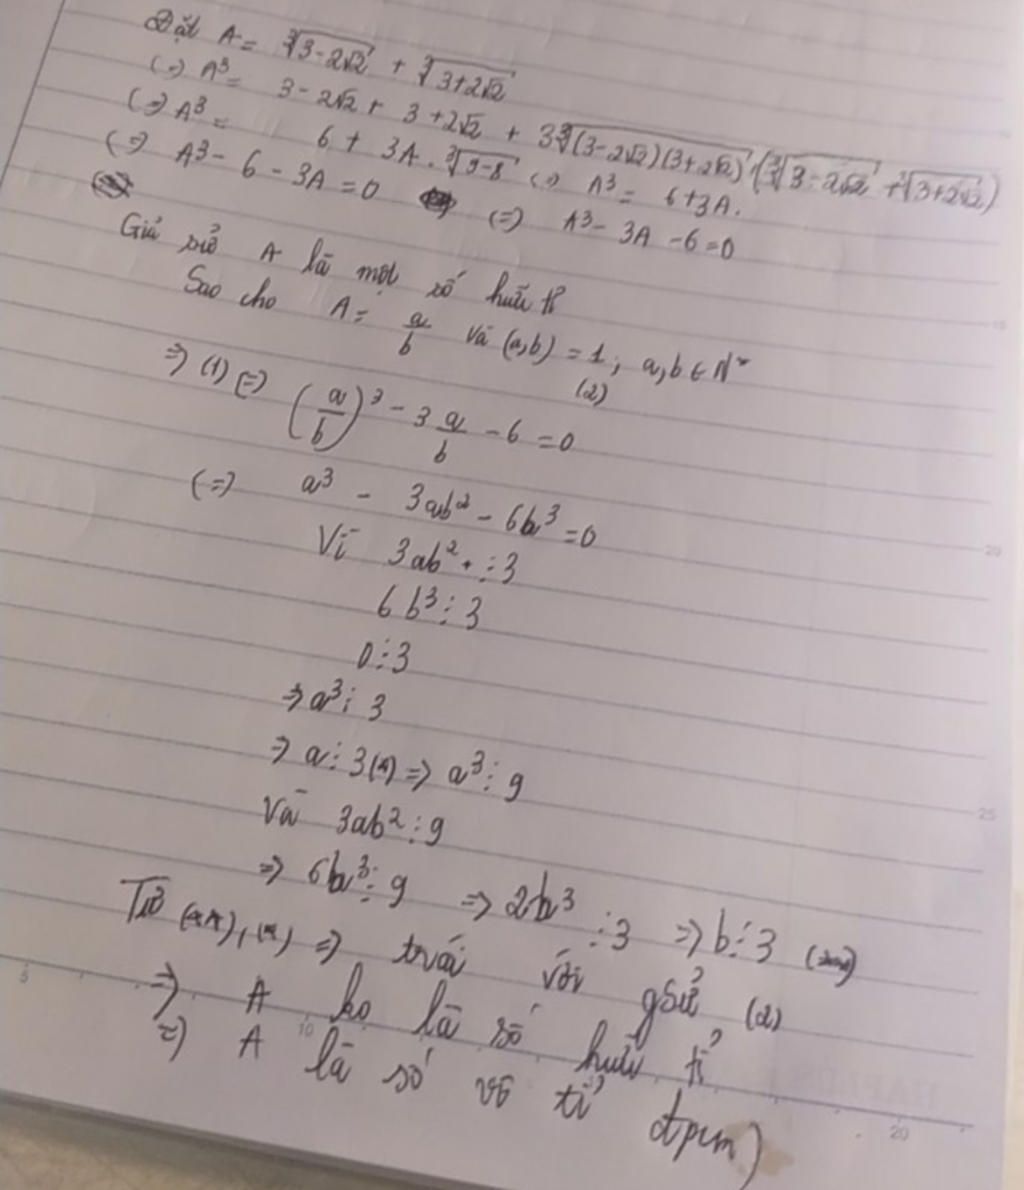 Đặt A = ∛(3-2√2) + ∛(3+2√2)
(=) A³ = 3-2√2 + 3+2√2 + 3∛(3-2√2)(3+2√2) (∛(3-2√2) + ∛(3+2√2))
(=) A³ = 6 + 3A . ∛(9-8) (=) A³ = 6+3A.
(=) A³ - 6 - 3A = 0 (=) A³ - 3A - 6 = 0
Giả sử A là một số hữu tỉ
Sao cho A = a/b và (a,b) = 1 ; a,b ∈ N*
(2)
=> (1) (=) (a/b)³ - 3 a/b - 6 = 0
(=) a³ - 3ab² - 6b³ = 0
Vì 3ab² ⋮ 3
6b³ ⋮ 3
0 ⋮ 3
=> a³ ⋮ 3
=> a ⋮ 3 (*) => a³ ⋮ 9
Và 3ab² ⋮ 9
=> 6b³ ⋮ 9 => 2b³ ⋮ 3 => b ⋮ 3 (**)
Từ (**), (*) => trái với gsử (2)
=> A ko là số hữu tỉ
=) A là số vô tỉ đpcm)
5
10
20
15
20
25